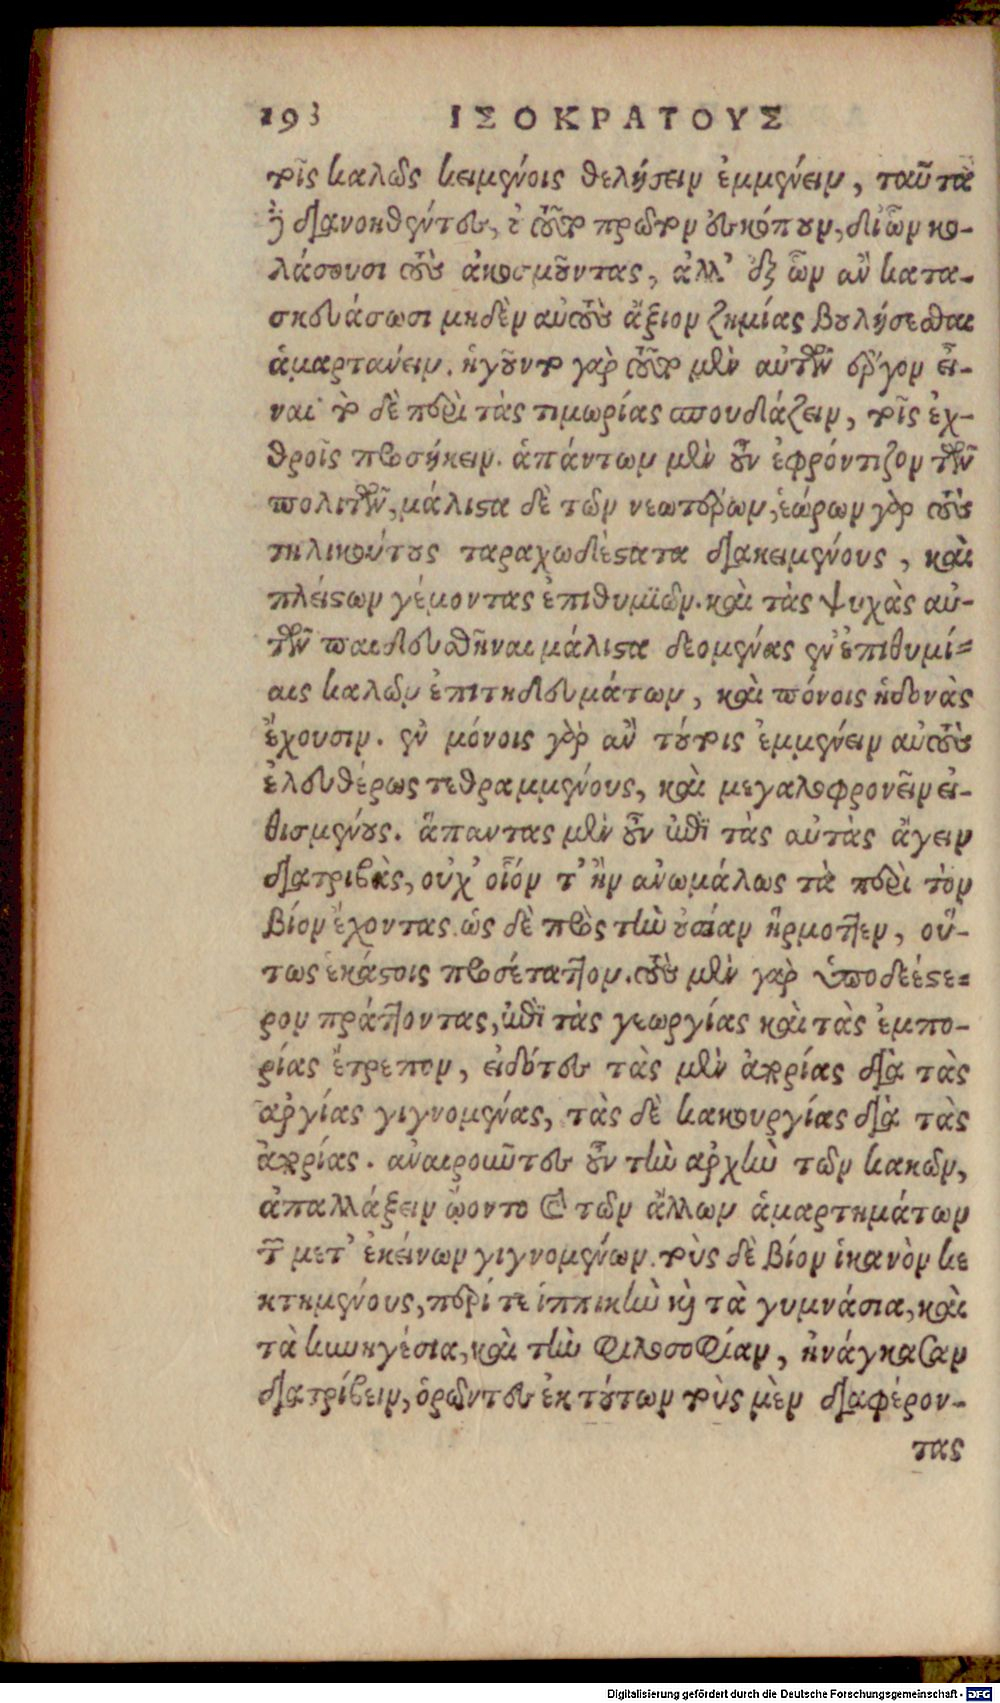 193 ΙΣΟΚΡΑΤΟΥΣ
τοῖς καλῶς κειμένοις θελήσειν ἐμμένειν, ταῦτα
δὴ διανοηθέντες, οὐ τοῦτο πρῶτον ἐσκόπουν, δι' ὧν κο-
λάσουσι τοὺς ἀκοσμοῦντας, ἀλλ' ἐξ ὧν ἂν κατα-
σκευάσωσι μηδὲν αὐτοὺς ἄξιον ζημίας βουλήσεσθαι
ἁμαρτάνειν. ἡγοῦντο γὰρ τοῦτο μὲν αὐτῶν ἔργον εἶ-
ναι· τὸ δὲ περὶ τὰς τιμωρίας σπουδάζειν, τοῖς ἐχ-
θροῖς προσήκειν. ἁπάντων μὲν οὖν ἐφρόντιζον τῶν
πολιτῶν, μάλιστα δὲ τῶν νεωτέρων, ἑώρων γὰρ τοὺς
τηλικούτους ταραχωδέστατα διακειμένους, καὶ
πλείστων γέμοντας ἐπιθυμιῶν. καὶ τὰς ψυχὰς αὐ-
τῶν παιδευθῆναι μάλιστα δεομένας ἐν ἐπιθυμί-
αις καλῶν ἐπιτηδευμάτων, καὶ πόνοις ἡδονὰς
ἔχουσιν. ἐν μόνοις γὰρ ἂν τούτοις ἐμμένειν αὐτοὺς
ἐλευθέρως τεθραμμένους, καὶ μεγαλοφρονεῖν εἰ-
θισμένους. ἅπαντας μὲν οὖν ἐπὶ τὰς αὐτὰς ἄγειν
διατριβὰς, οὐχ' οἷόν τ' ἦν ἀνωμάλως τὰ περὶ τὸν
βίον ἔχοντας. ὡς δὲ πρὸς τὴν οὐσίαν ἥρμοττεν, οὕ-
τως ἑκάστοις προσέταττον. τοὺς μὲν γὰρ ὑποδεέστε-
ρον πράττοντας, ἐπὶ τὰς γεωργίας καὶ τὰς ἐμπο-
ρίας ἔτρεπον, εἰδότες τὰς μὲν ἀπορίας διὰ τὰς
ἀργίας γιγνομένας, τὰς δὲ κακουργίας διὰ τὰς
ἀπορίας. ἀναιροῦντες οὖν τὴν ἀρχὴν τῶν κακῶν,
ἀπαλλάξειν ᾤοντο καὶ τῶν ἄλλων ἁμαρτημάτων
τῶν μετ' ἐκείνων γιγνομένων. τοὺς δὲ βίον ἱκανὸν κε
κτημένους, περί τε ἱππικὴν καὶ τὰ γυμνάσια, καὶ
τὰ κυνηγέσια, καὶ τὴν φιλοσοφίαν, ἠνάγκασαν
διατρίβειν, ὁρῶντες ἐκ τούτων τοὺς μὲν διαφέρον-
τας
Digitalisierung gefördert durch die Deutsche Forschungsgemeinschaft - DFG